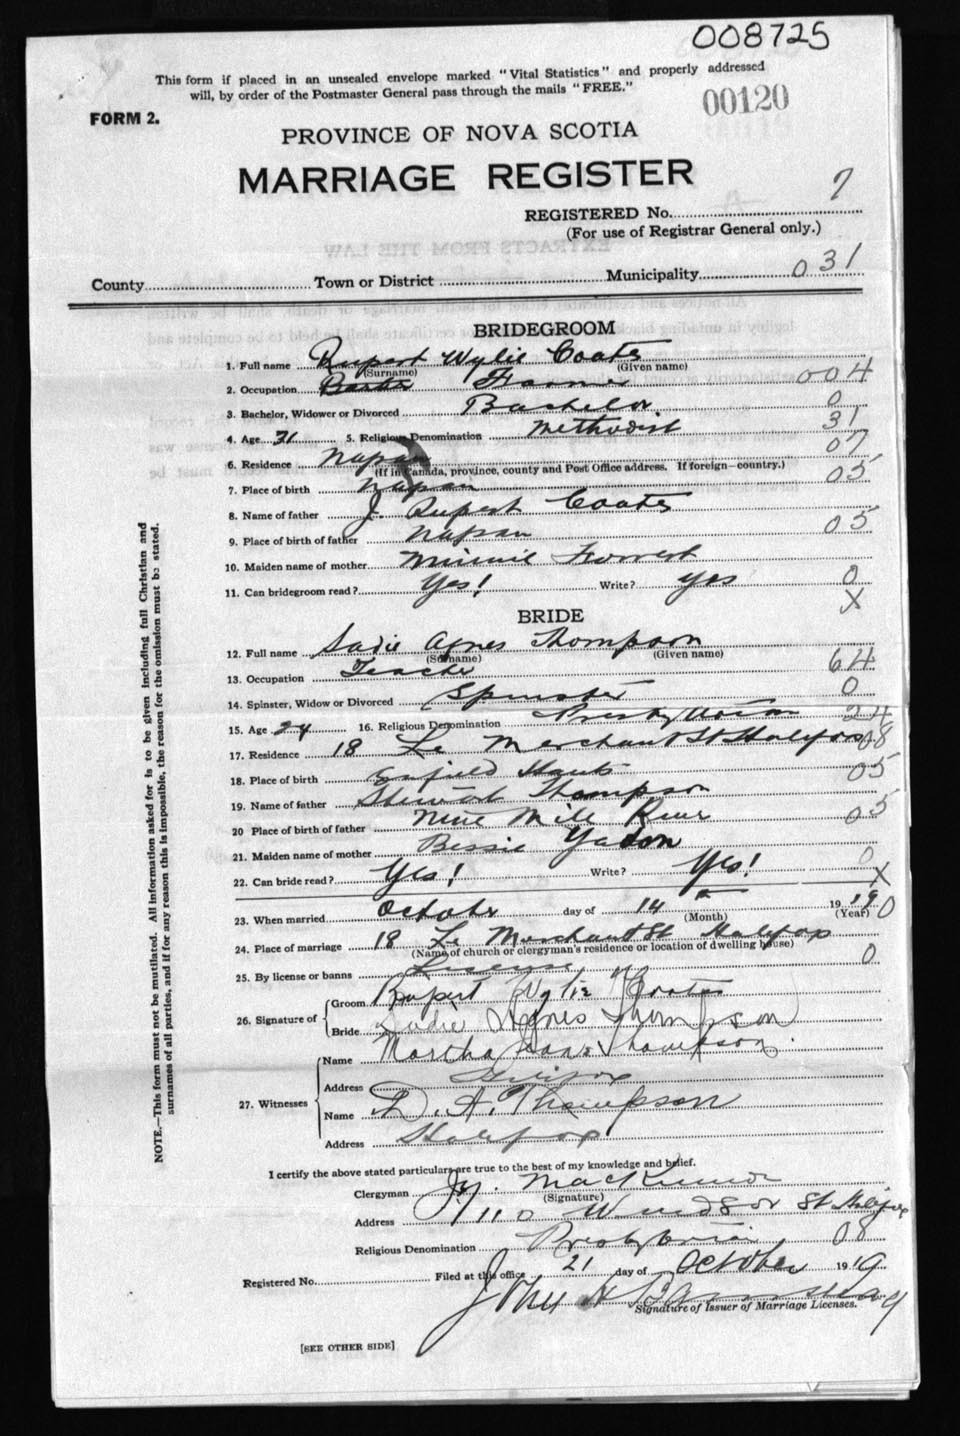 008725
This form if placed in an unsealed envelope marked "Vital Statistics" and properly addressed
will, by order of the Postmaster General pass through the mails "FREE."
00120
FORM 2.
PROVINCE OF NOVA SCOTIA
MARRIAGE REGISTER
7
REGISTERED No.
(For use of Registrar General only.)
County Town or District Municipality 031
BRIDEGROOM
1. Full name Rupert Wylie Coates
(Surname) (Given name)
2. Occupation Farmer 004
3. Bachelor, Widower or Divorced Bachelor 0
4. Age 31 5. Religious Denomination Methodist 31
6. Residence Napan 07
(If in Canada, province, county and Post Office address. If foreign—country.)
7. Place of birth Napan 05
8. Name of father J. Rupert Coates
9. Place of birth of father Napan 05
10. Maiden name of mother Minnie Forrest
11. Can bridegroom read? Yes! Write? yes 0
X
BRIDE
12. Full name Sadie Agnes Thompson
(Surname) (Given name)
13. Occupation Teacher 64
14. Spinster, Widow or Divorced Spinster 0
15. Age 24 16. Religious Denomination Presbyterian 24
17. Residence 18 Le Merchant St Halifax 08
18. Place of birth Enfield Hants 05
19. Name of father Stewart Thompson
20 Place of birth of father Nine Mile River 05
21. Maiden name of mother Bessie Yadon
22. Can bride read? Yes! Write? Yes! 0
X
23. When married October day of 14 1919 0
(Month) (Year)
24. Place of marriage 18 Le Merchant St Halifax
(Name of church or clergyman's residence or location of dwelling house)
25. By license or banns License 0
26. Signature of
Groom Rupert Wylie Coates
Bride Sadie Agnes Thompson
27. Witnesses
Name Martha Thompson
Address Halifax
Name D. A. Thompson
Address Halifax
I certify the above stated particulars are true to the best of my knowledge and belief.
Clergyman MacKinnon
(Signature)
Address 110 Windsor St Halifax
Religious Denomination Presbyterian 08
Registered No. Filed at this office 21 day of October 1919
John
Signature of Issuer of Marriage Licenses.
[SEE OTHER SIDE]
NOTE.—This form must not be mutilated. All information asked for is to be given including full Christian and
surnames of all parties, and if for any reason this is impossible, the reason for the omission must be stated.